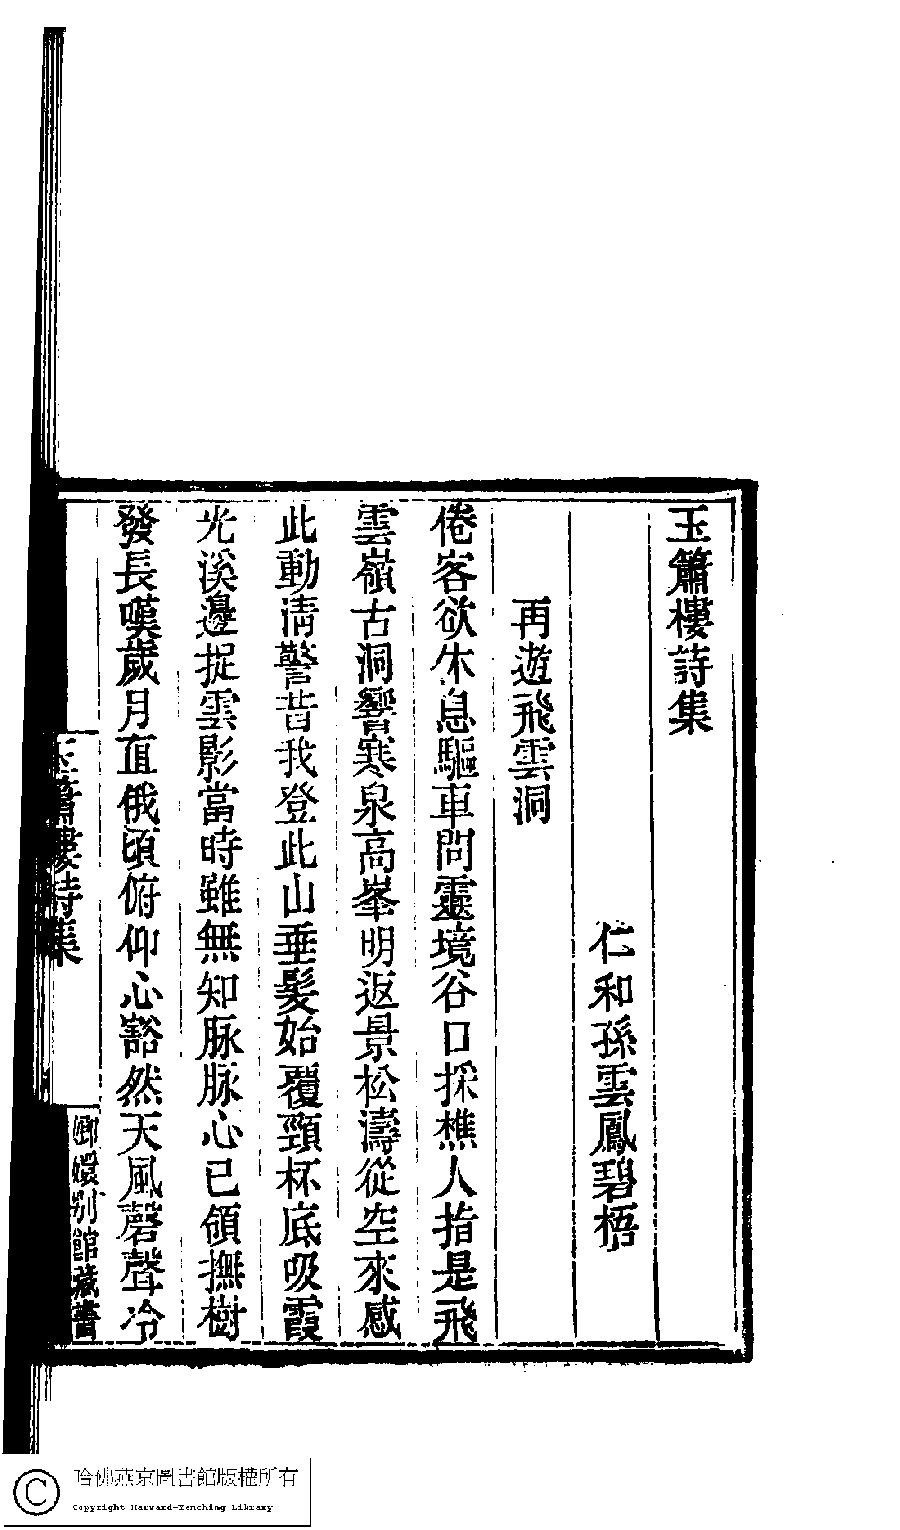 玉簫樓詩集
仁和孫雲鳳碧梧
再遊飛雲洞
倦客欲休息驅車問靈境谷口採樵人指是飛
雲嶺古洞響寒泉高峯明返景松濤從空來感
此動淸警昔我登此山垂髮始覆頸杯底吸霞
光溪邊捉雲影當時雖無知脉脉心已領撫樹
發長嘆歲月直俄頃俯仰心豁然天風磬聲冷
玉簫樓詩集
嫏嬛別館藏書
哈佛燕京圖書館版權所有
Copyright Harvard-Yenching Library